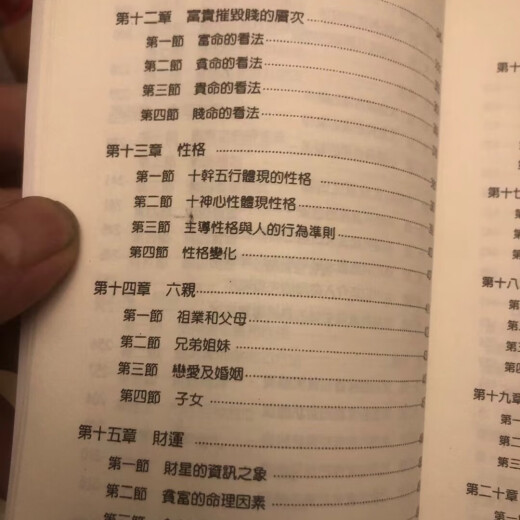 第十二章 富貴摧毀賤的層次
第一節 富命的看法
第二節 貧命的看法
第三節 貴命的看法
第四節 賤命的看法
第十三章 性格
第一節 十幹五行體現的性格
第二節 十神心性體現性格
第三節 主導性格與人的行為準則
第四節 性格變化
第十四章 六親
第一節 祖業和父母
第二節 兄弟姐妹
第三節 戀愛及婚姻
第四節 子女
第十五章 財運
第一節 財星的資訊之象
第二節 貧富的命理因素
第十
第
第
第
第十七
第
第
第十八
第
第三
第四
第十九章
第一
第二
第三
第二十章